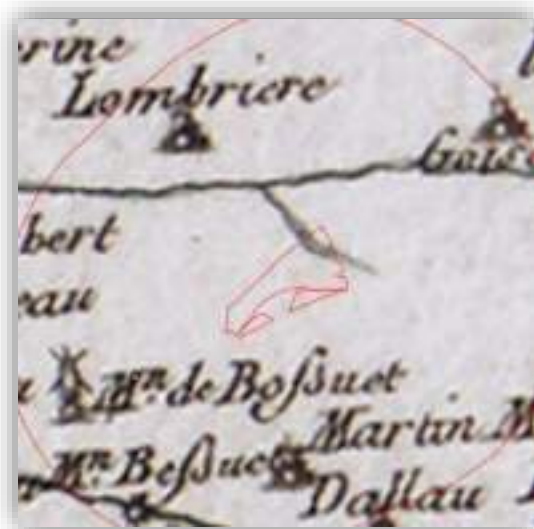 erine
Lombriere
Goiss
bert
eau
Mⁿ. de Boſsuet
Martin M
Mⁿ Beſsuet
Dallau